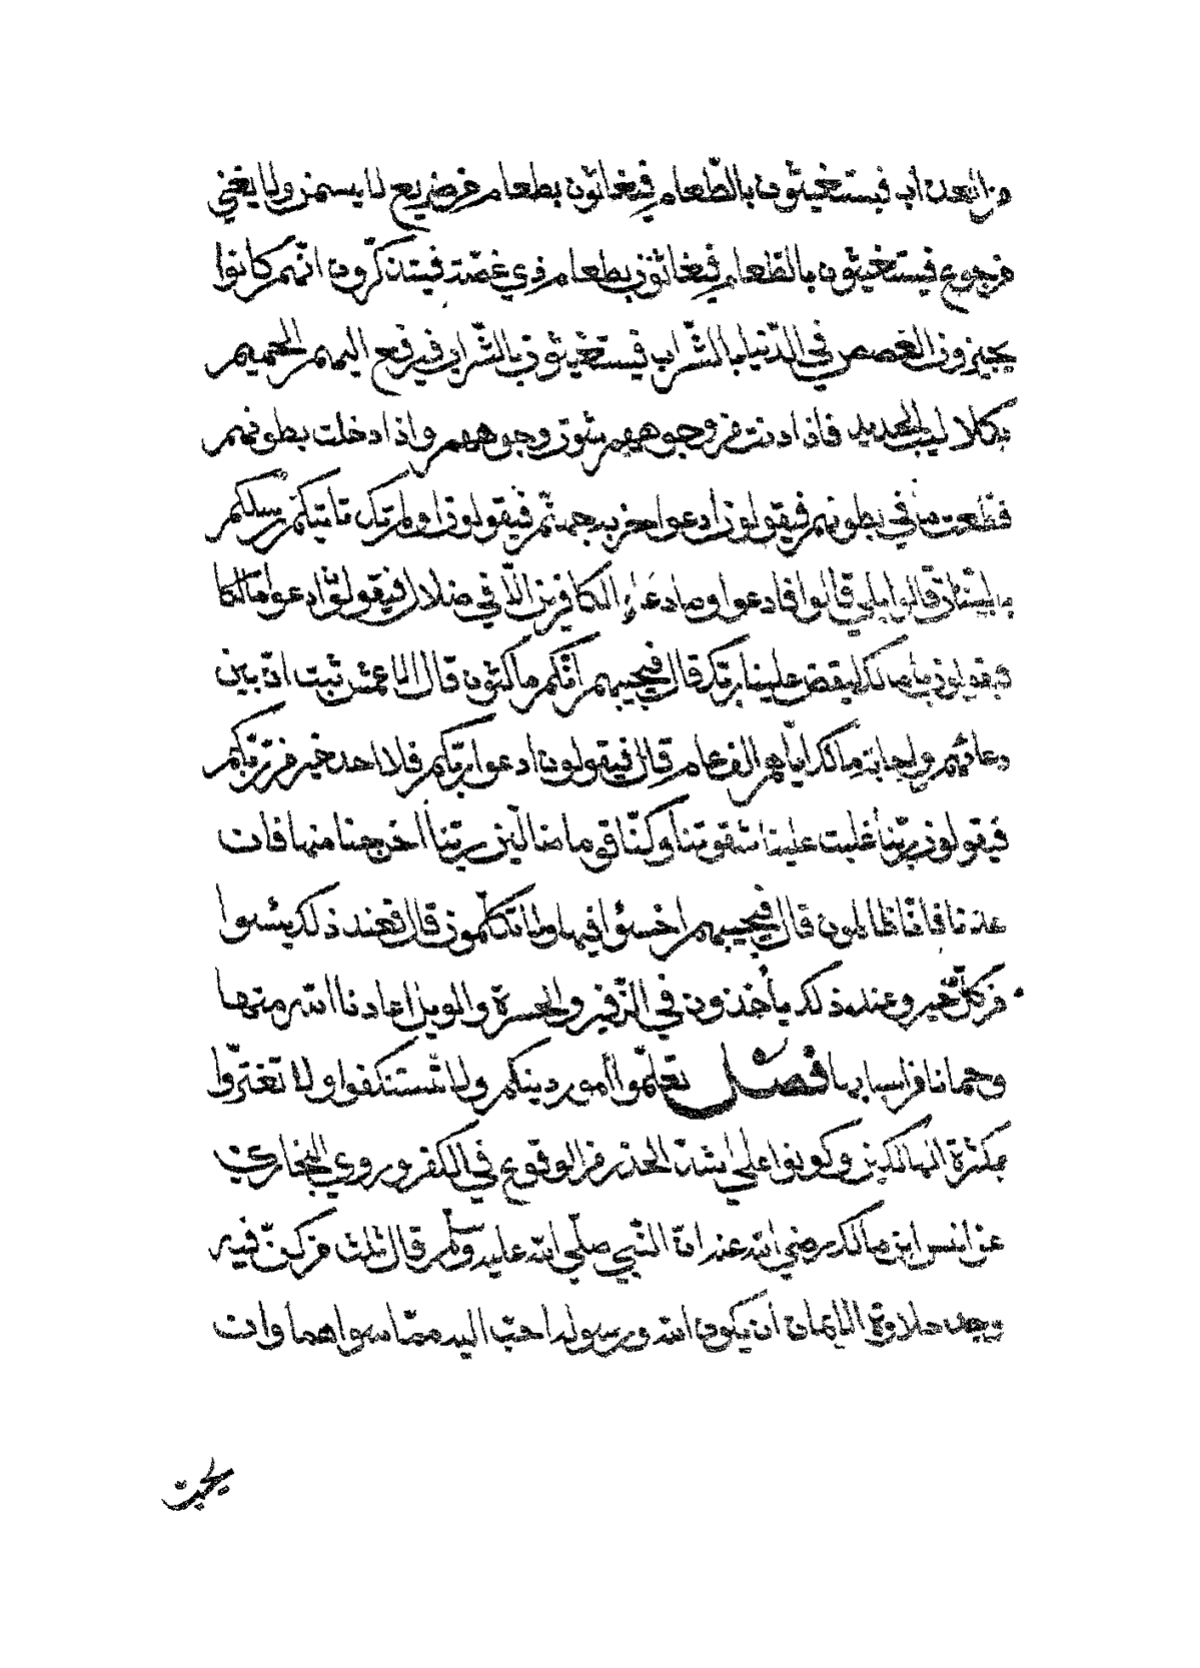 من العذاب فيستغيثون بالطّعام فيغاثون بطعام من ضريع لا يسمن ولا يغني
من جوع فيستغيثون بالطعام فيغاثون بطعام ذي غصّة فيتذكّرون انّهم كانوا
يجيزون الغصص في الدّنيا بالشّراب فيستغيثون بالشّراب فيرفع اليهم الحميم
بكلاليب الحديد فاذا دنت من وجوههم شوت وجوههم واذا دخلت بطونهم
قطّعت ما في بطونهم فيقولون أدعوا خزنة جهنّم فيقولون اولم تك تاتيكم رسلكم
بالبيّنات قالوا بلى قالوا فادعوا وما دعاء الكافرين الّا في ضلال فيقولون ادعوا مالكا
فيقولون يا مالك ليقض علينا ربّك قال فيجيبهم انّكم ماكثون قال الاعمش نبّت انّ بين
دعائهم واجابة مالك ايّاهم الف عام قال فيقولون ادعوا ربّكم فلا احد خير من ربّكم
فيقولون ربّنا غلبت علينا شقوتنا وكنّا قوما ضالّين ربّنا أخرجنا منها فان
عدنا فانّا ظالمون قال فيجيبهم اخسئوا فيها ولا تكلّمون قال فعند ذلك يئسوا
من كلّ خير وعند ذلك يأخذون في الزّفير والحسرة والويل اعاذنا الله منها
وحمانا من اسبابها فصل تعلّموا أمور دينكم ولا تستنكفوا ولا تغترّوا
بكثرة الهالكين وكونوا على اشدّ الحذر من الوقوع في الكفر وروي البخاري
عن انس ابن مالك رضي الله عنه انّ النّبي صلّى الله عليه وسلّم قال ثلث من كنّ فيه
وجد حلاوة الايمان ان يكون الله ورسوله احبّ اليه ممّا سواهما وان
يحبّ